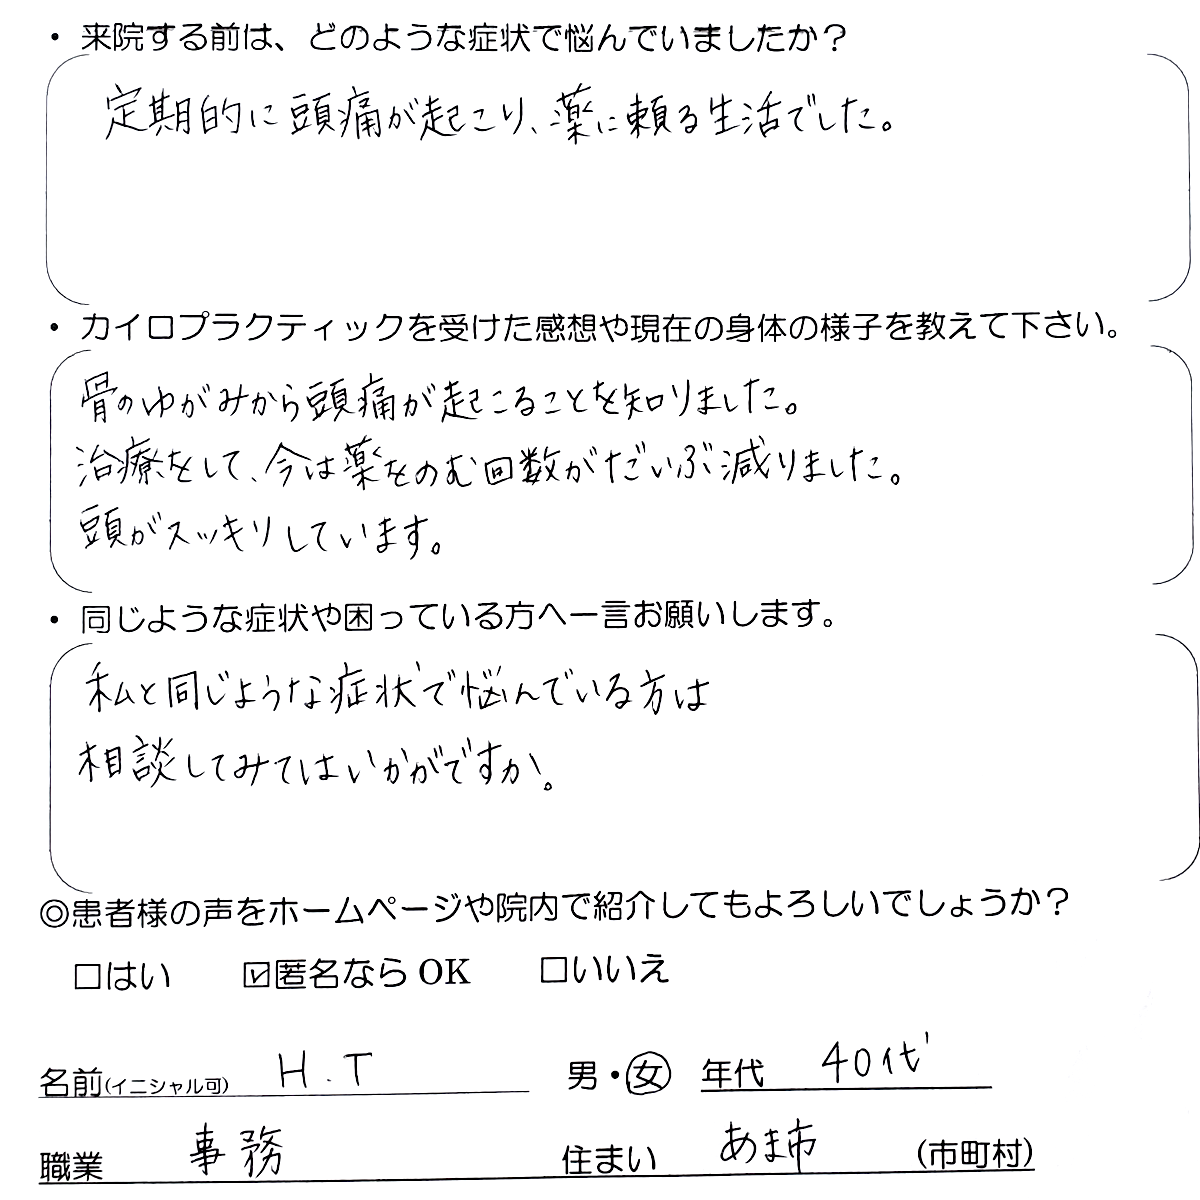 ・来院する前は、どのような症状で悩んでいましたか？
定期的に頭痛が起こり、薬に頼る生活でした。
・カイロプラクティックを受けた感想や現在の身体の様子を教えて下さい。
骨のゆがみから頭痛が起こることを知りました。
治療をして、今は薬をのむ回数がだいぶ減りました。
頭がスッキリしています。
・同じような症状や困っている方へ一言お願いします。
私と同じような症状で悩んでいる方は
相談してみてはいかがですか。
◎患者様の声をホームページや院内で紹介してもよろしいでしょうか？
□はい ☑匿名なら OK □いいえ
名前(イニシャル可) H.T 男・女 年代 40代
職業 事務 住まい あま市 (市町村)